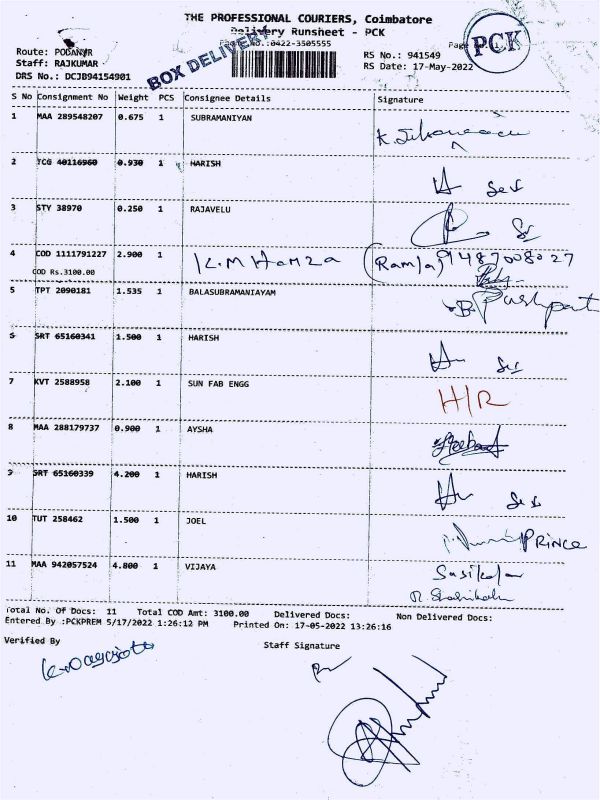 THE PROFESSIONAL COURIERS, Coimbatore
Delivery Runsheet - PCK
Phone No.:0422-3505555
PCK
BOX DELIVERY
Route: PODANUR
Staff: RAJKUMAR
DRS No.: DCJB94154901
RS No.: 941549
RS Date: 17-May-2022
S No Consignment No Weight PCS Consignee Details Signature
1 MAA 289548207 0.675 1 SUBRAMANIYAN
2 TCG 40116960 0.930 1 HARISH
3 STY 38970 0.250 1 RAJAVELU
4 COD 1111791227 2.900 1 K.M Hamza (Ramla) 9487008027
COD Rs.3100.00
5 TPT 2090181 1.535 1 BALASUBRAMANIAYAM
6 SRT 65160341 1.500 1 HARISH
7 KVT 2588958 2.100 1 SUN FAB ENGG H/R
8 MAA 288179737 0.900 1 AYSHA
9 SRT 65160339 4.200 1 HARISH
10 TUT 258462 1.500 1 JOEL PRINCE
11 MAA 942057524 4.800 1 VIJAYA Sasikala
Total No. Of Docs: 11 Total COD Amt: 3100.00 Delivered Docs: Non Delivered Docs:
Entered By :PCKPREM 5/17/2022 1:26:12 PM Printed On: 17-05-2022 13:26:16
Verified By Staff Signature